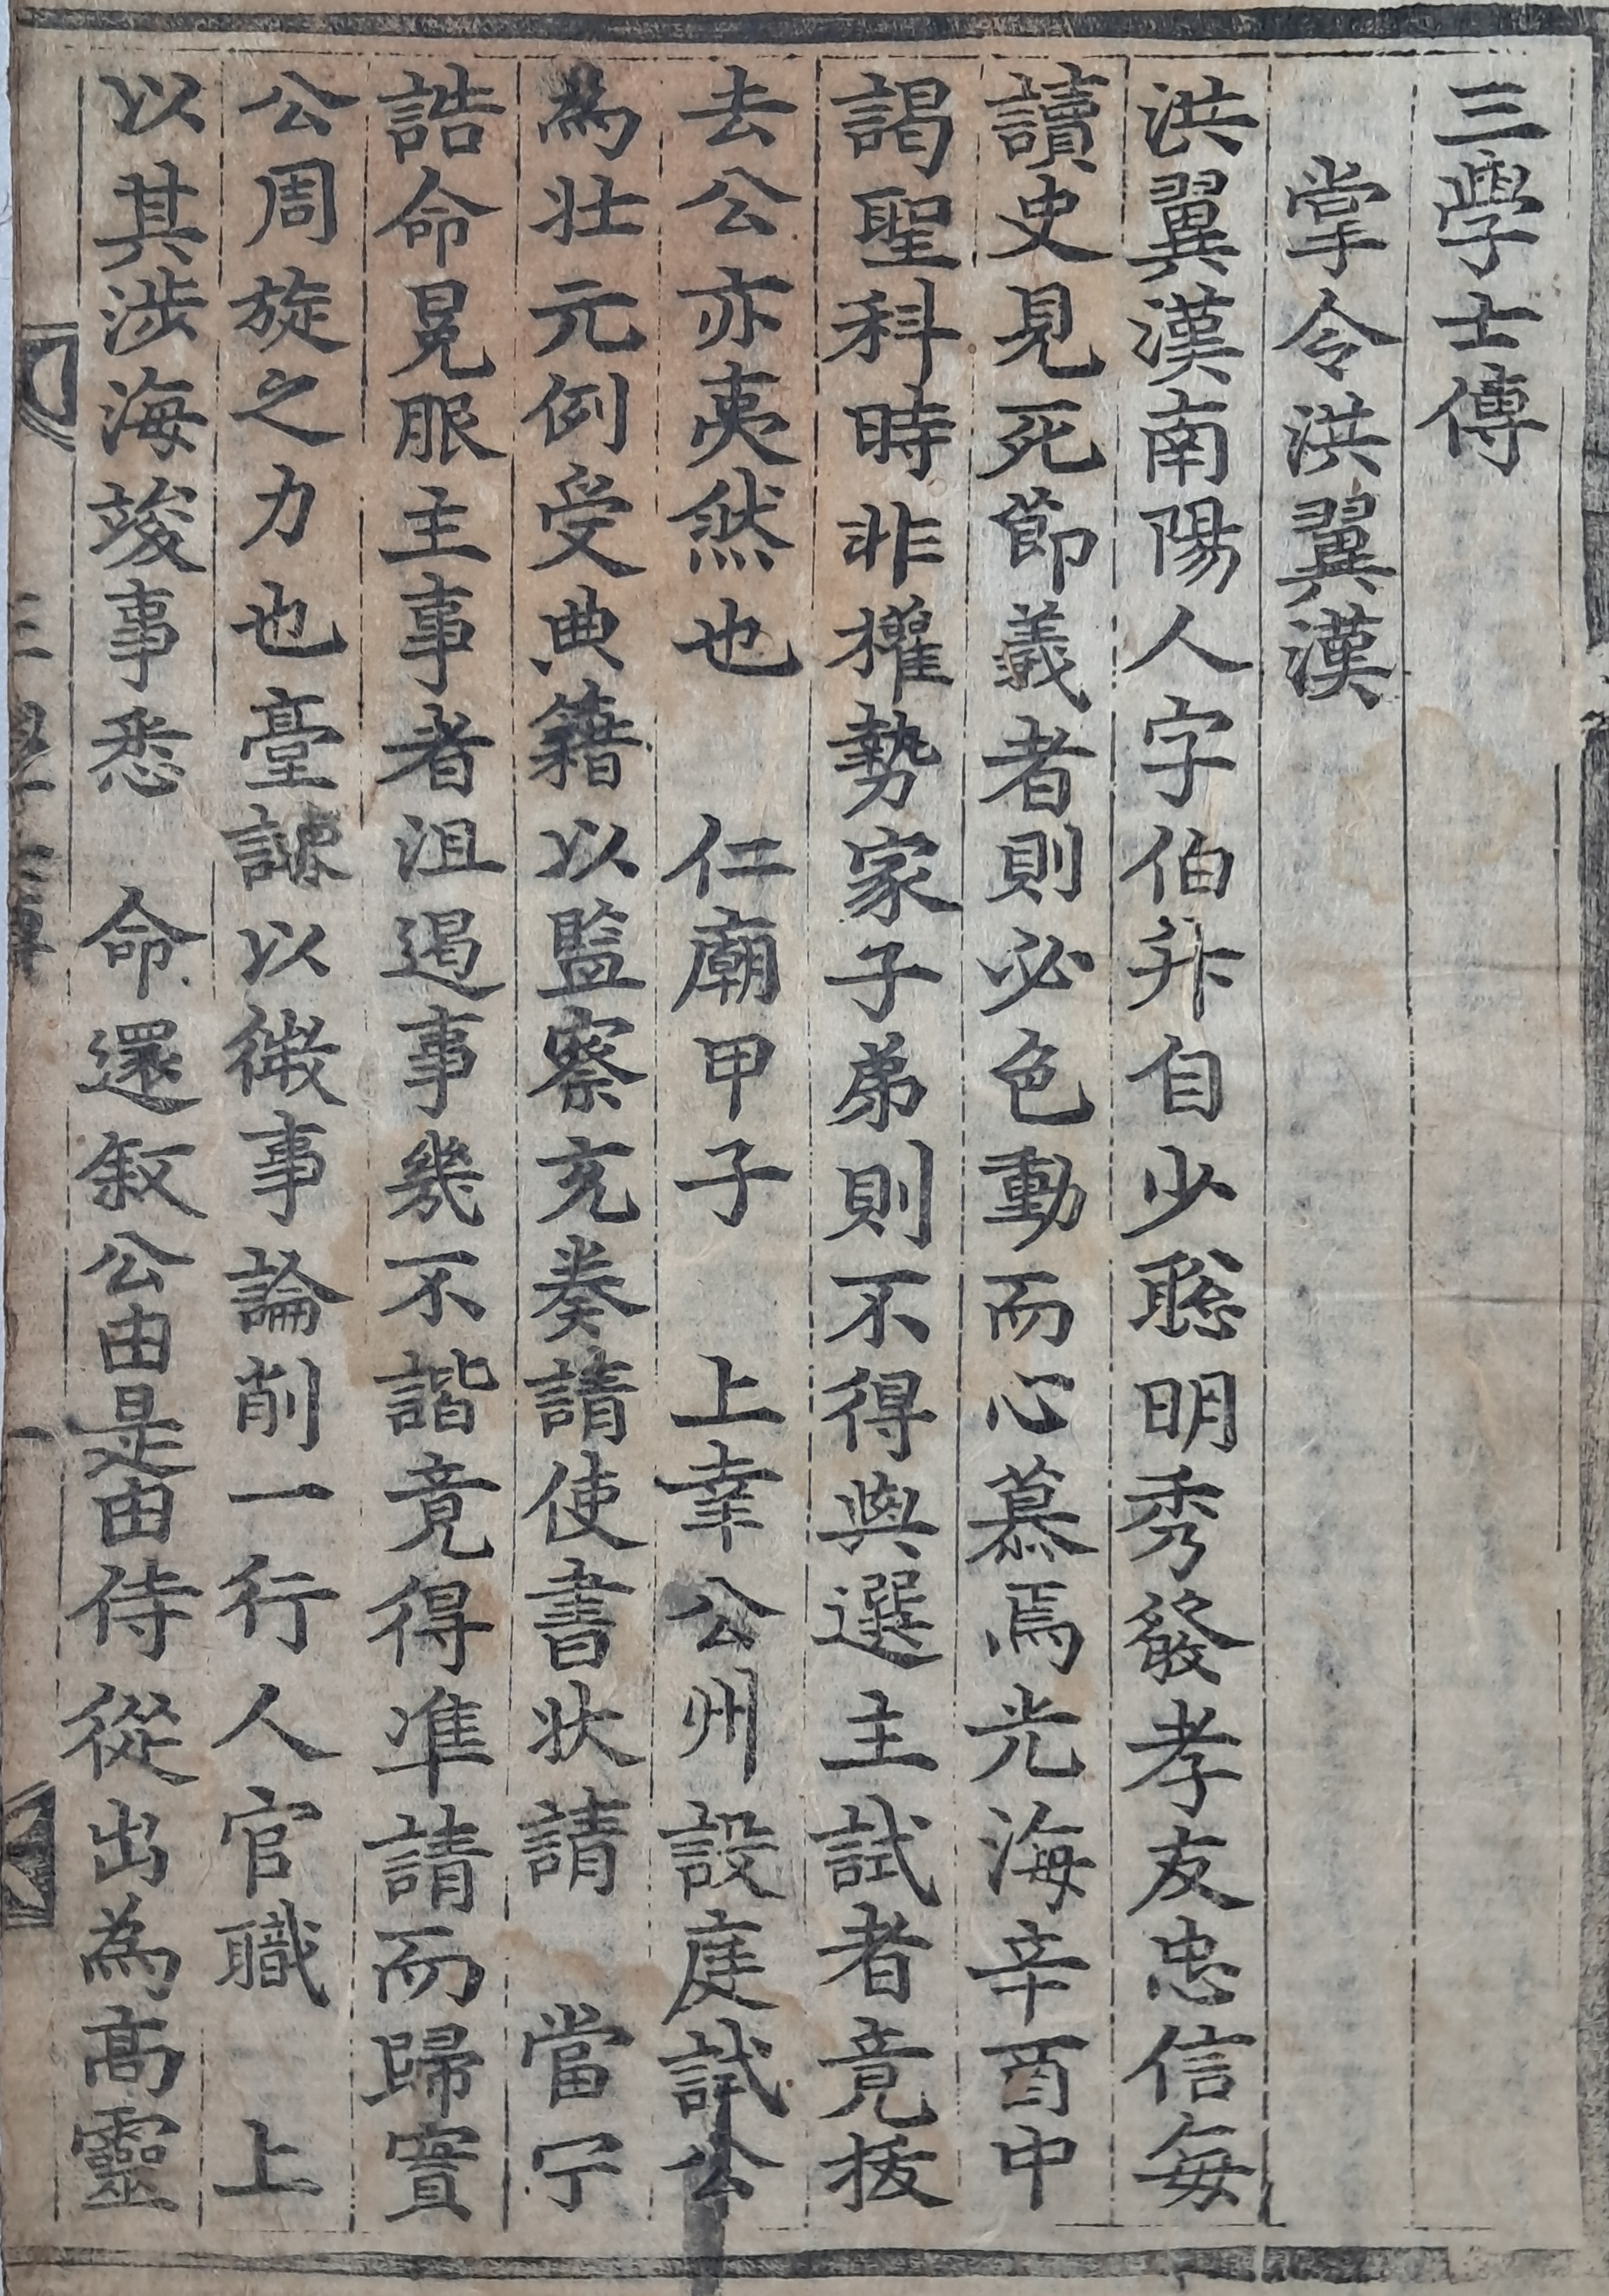 三學士傳
掌令洪翼漢
洪翼漢南陽人字伯升自少聡明秀發孝友忠信每
讀史見死節義者則必色動而心慕焉光海辛酉中
謁聖科時非權勢家子弟則不得與選主試者竟拔
去公亦夷然也 仁廟甲子 上幸公州設庭試公
為壯元例受典籍以監察充奏請使書狀請 當宁
誥命冕服主事者沮遏事幾不諧竟得准請而歸實
公周旋之力也臺諫以微事論削一行人官職 上
以其涉海竣事悉 命還叙公由是由侍從出為高靈